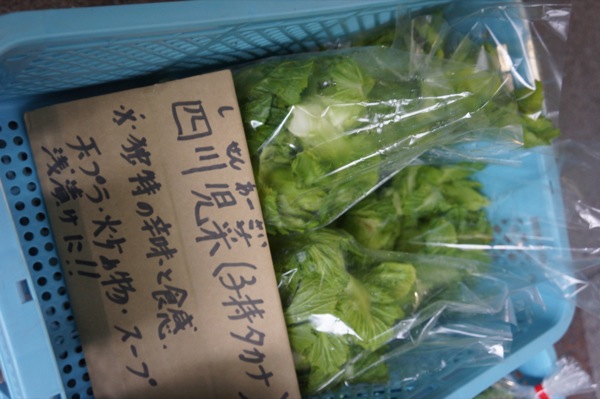 しせんあーさい
四川児菜(子持タカナ)
※独特の辛味と食感・
天プラ・炒め物・スープ
浅漬けに!!